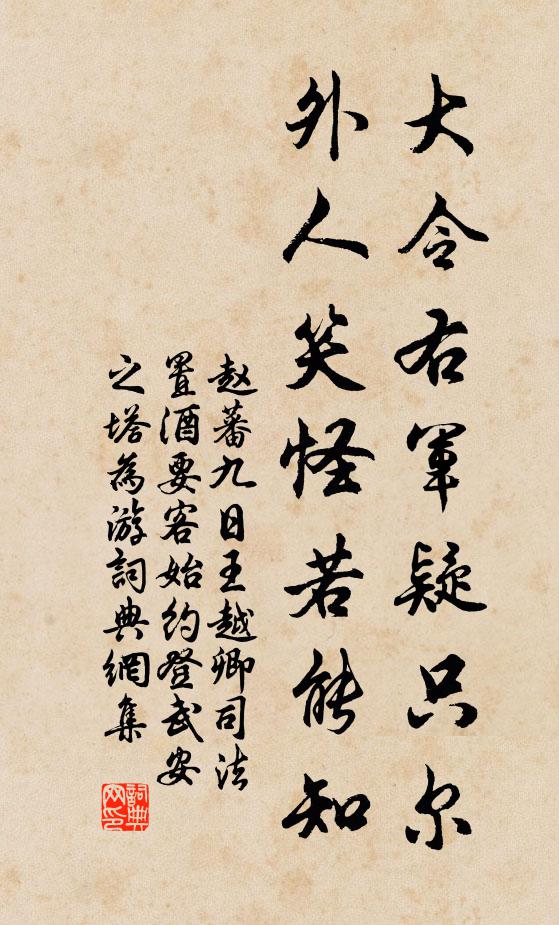 大令右軍疑只尔
外人笑怪若能知
赵蕃九日王越卿司法
置酒要客始約登武安
之塔為游詞典網集
詞典网印